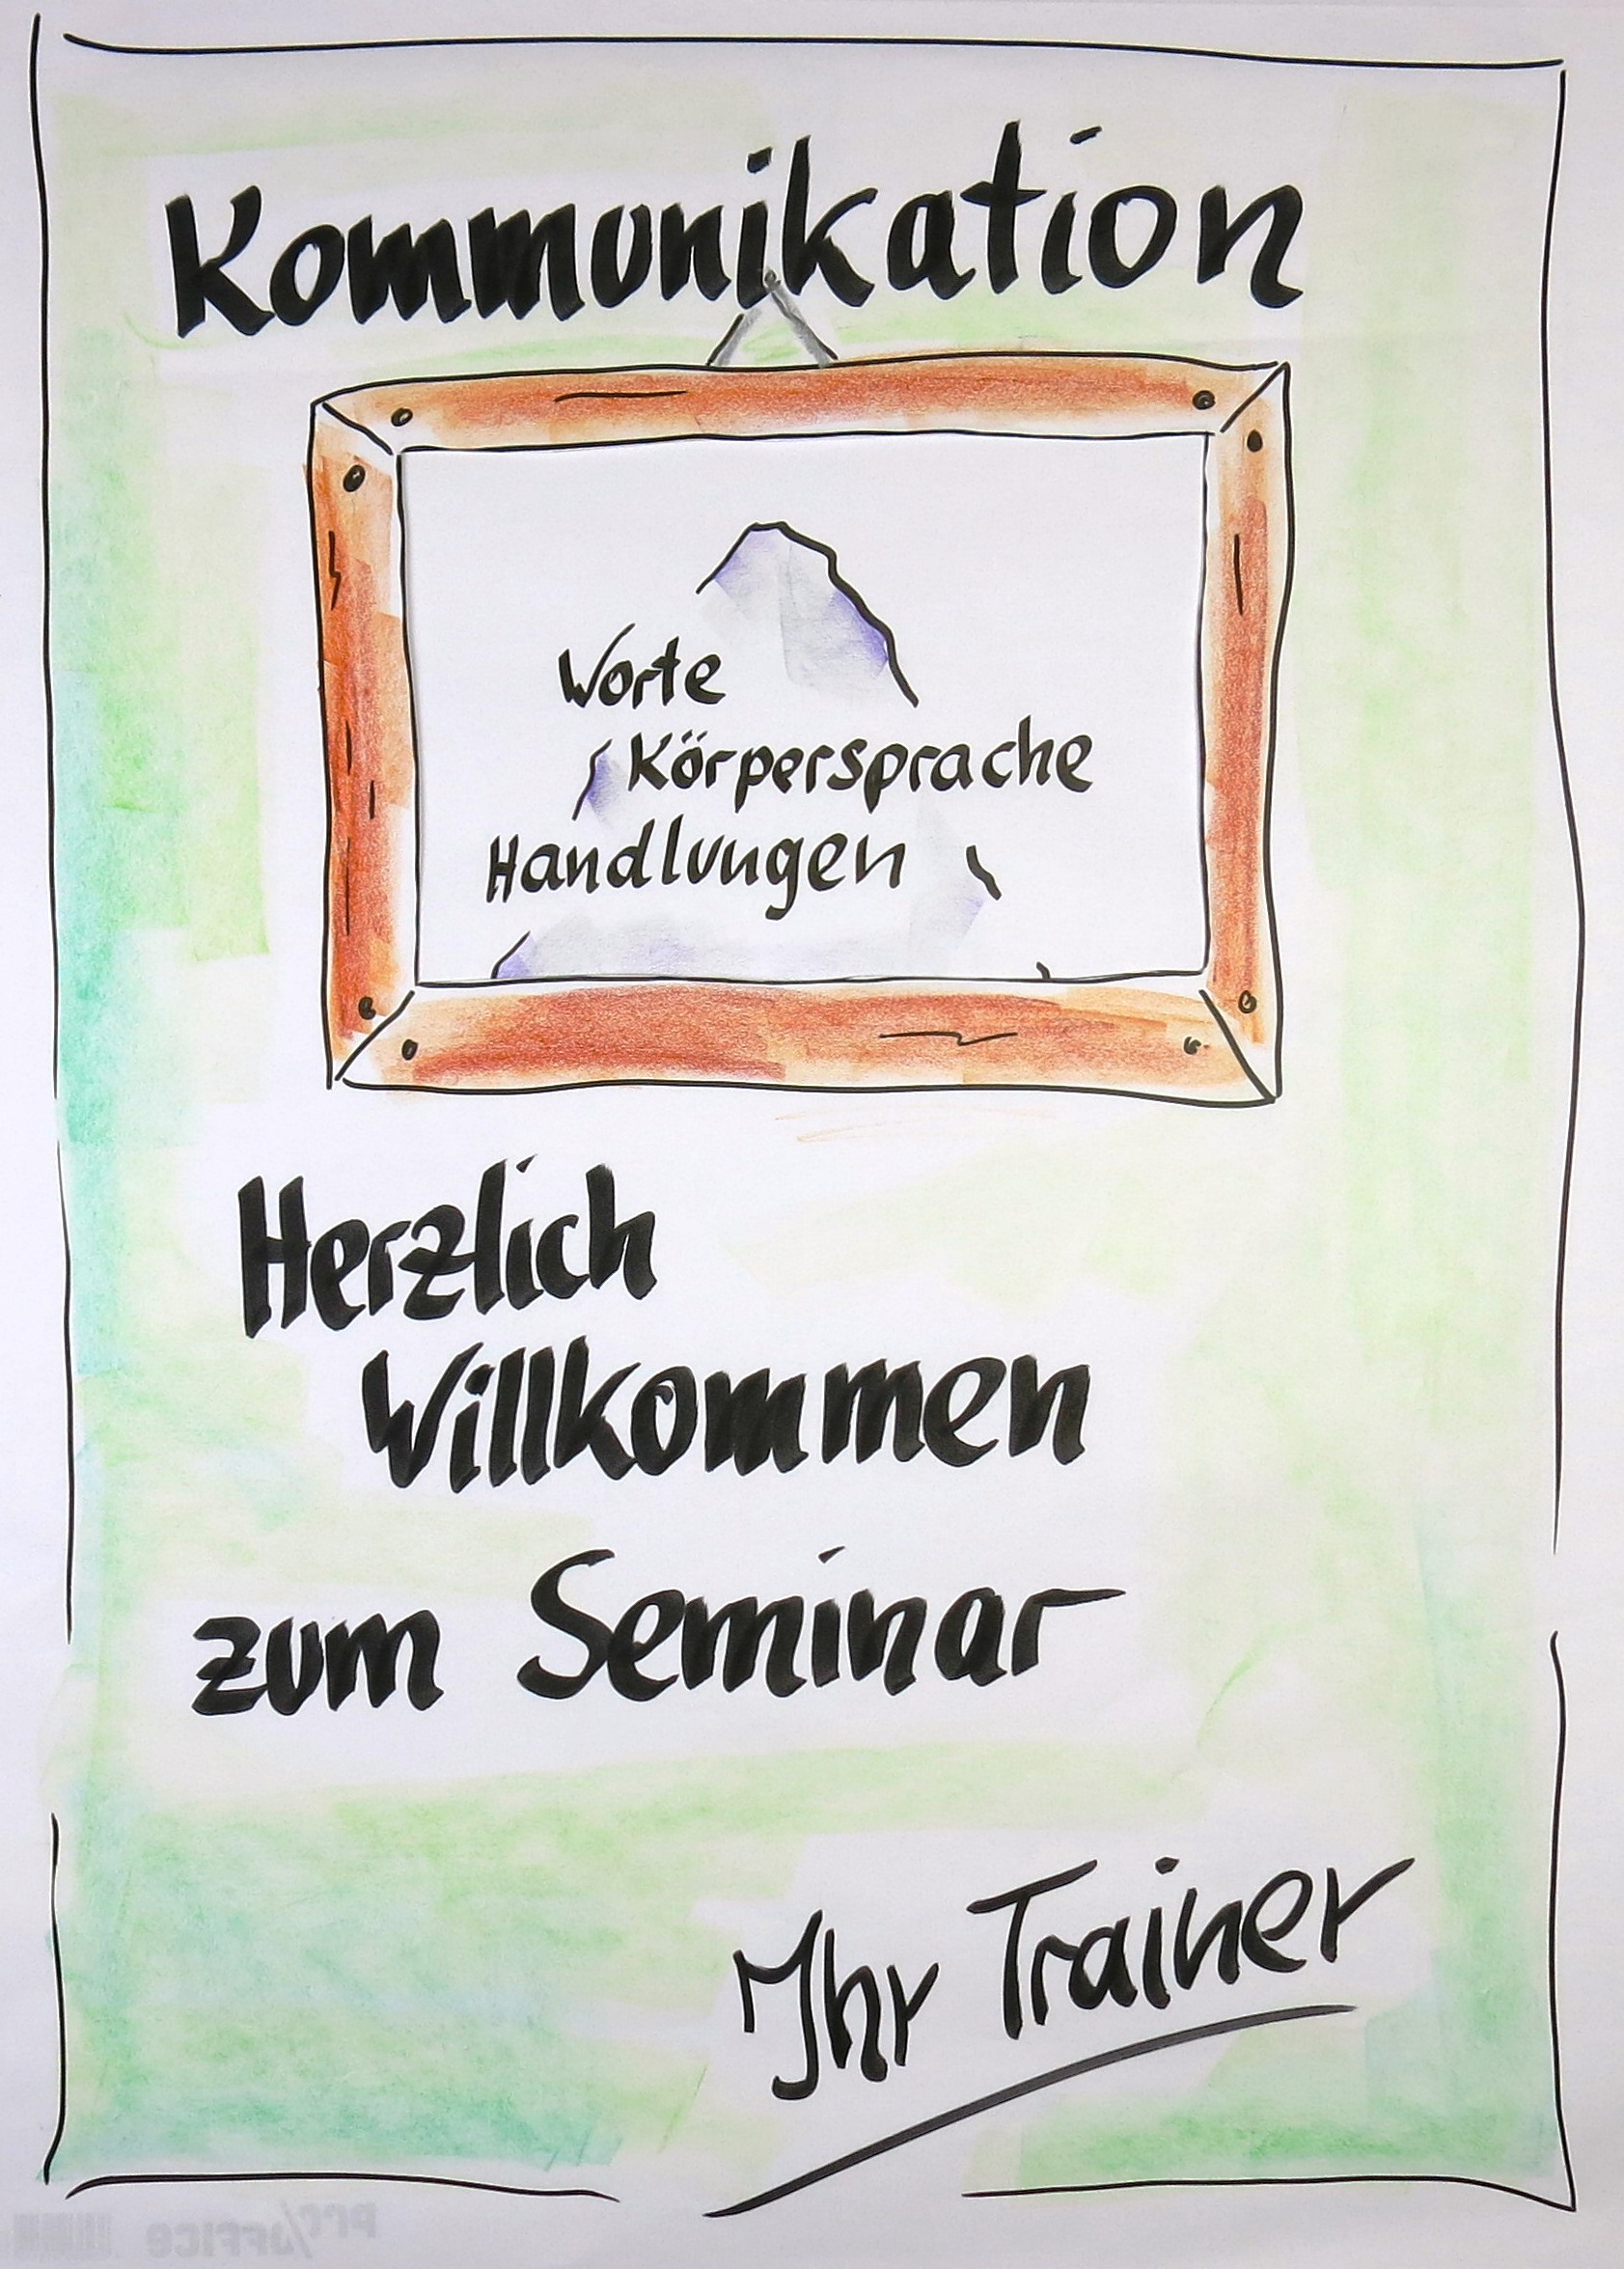 Kommunikation
Worte
Körpersprache
Handlungen
Herzlich
Willkommen
zum Seminar
Ihr Trainer